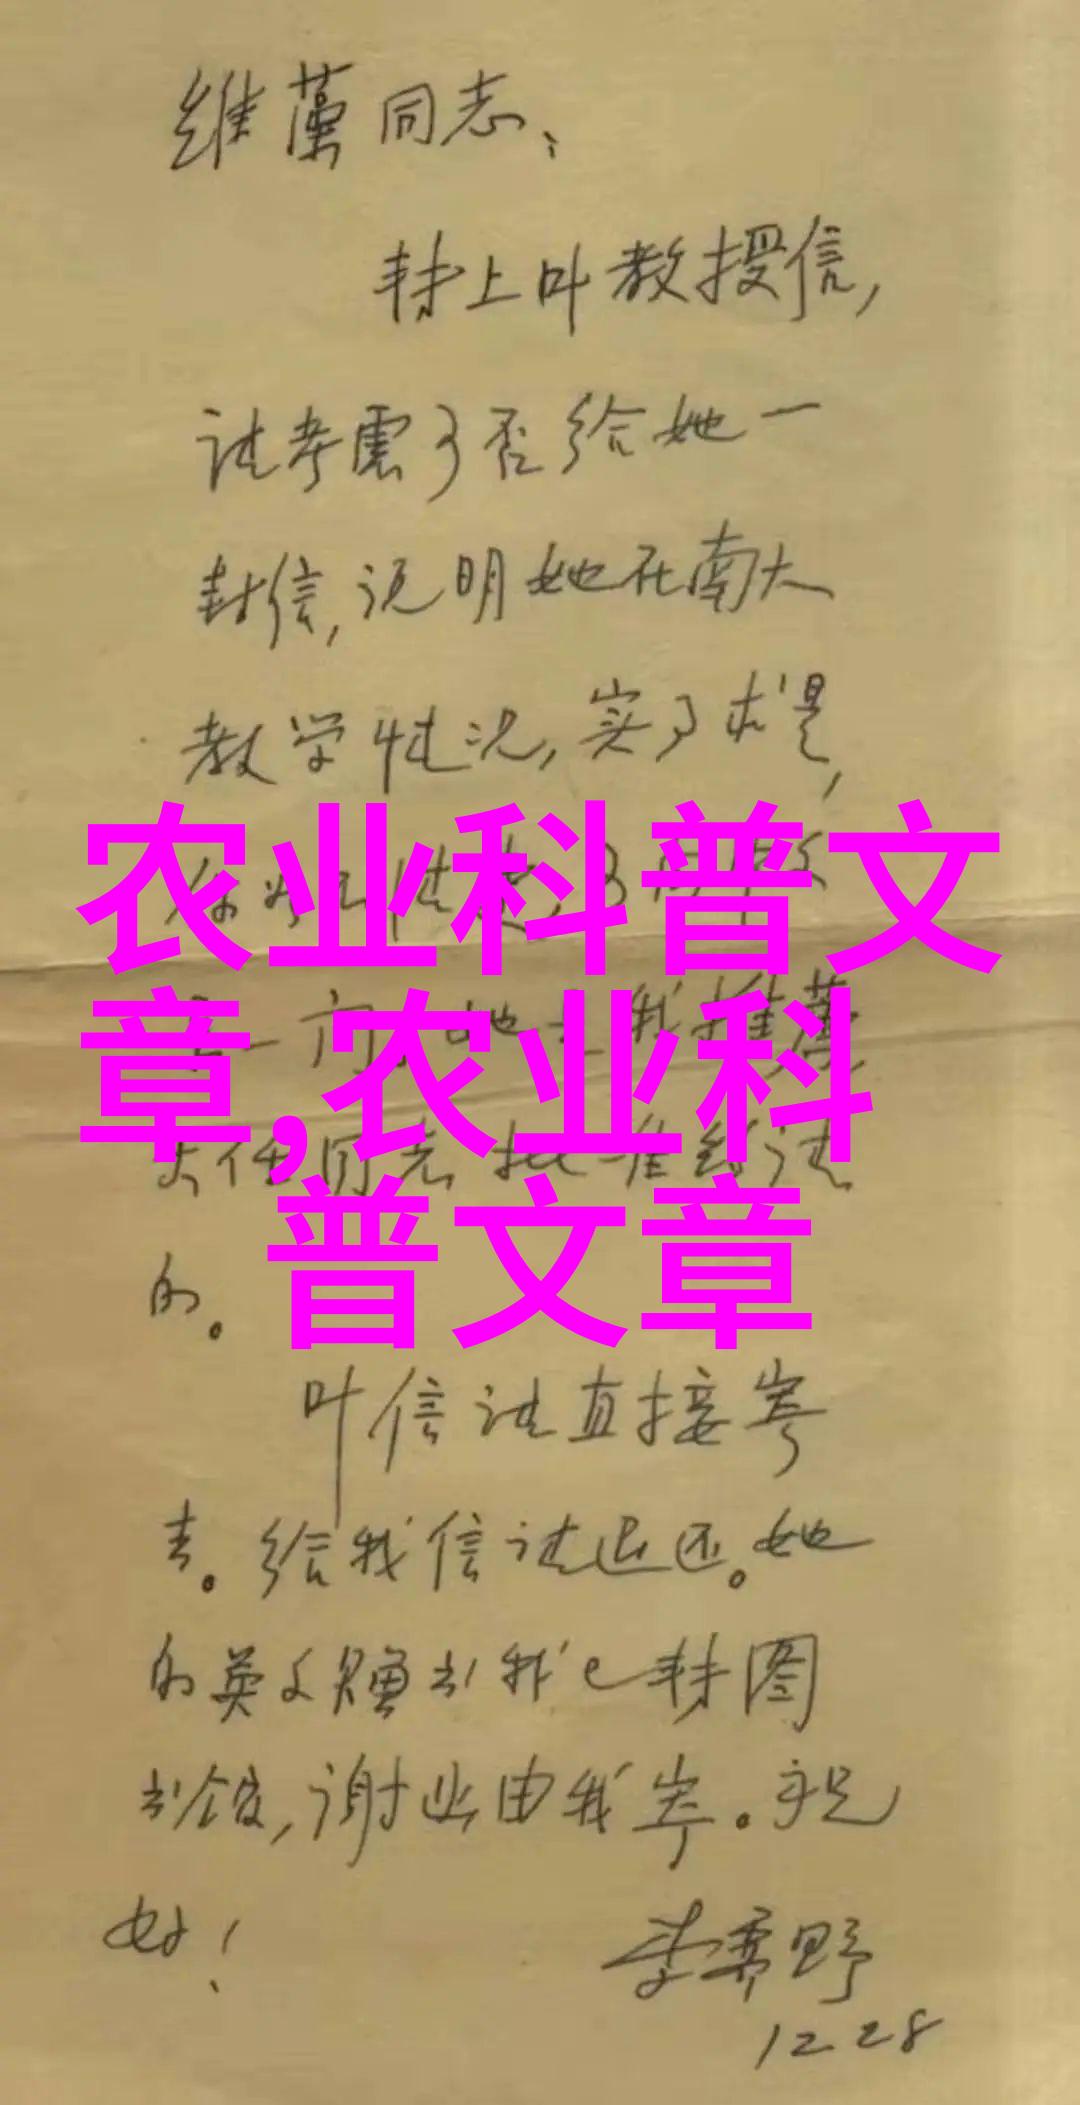 维藻同志：
转上叶教授信，
请考虑可否给她一
封信，说明她在南大
教学情况，实事求是，
农业科普文
章,农业科
普文章
任同志批准
的。
叶信请直接寄
去。给我信请退还。她
的英文赠书我已转图
书馆，谢此由我寄。祝
好！
李霁野
12 28